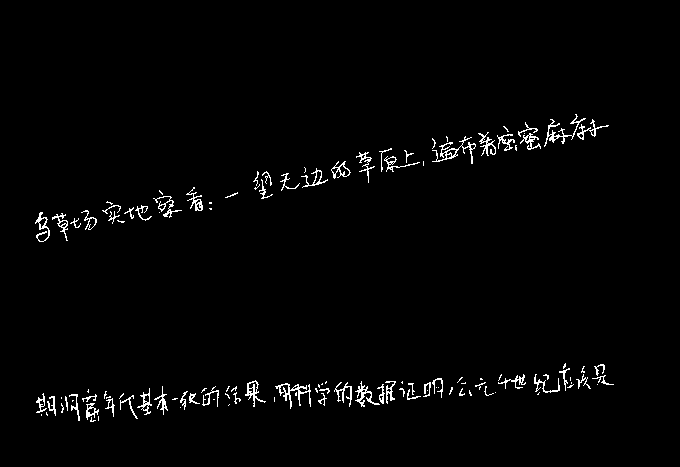 鸟草场实地察看:一望无边的草原上,遍布着密密麻麻
期洞窟年代基本一致的结果,用科学的数据证明,公元4世纪应该是